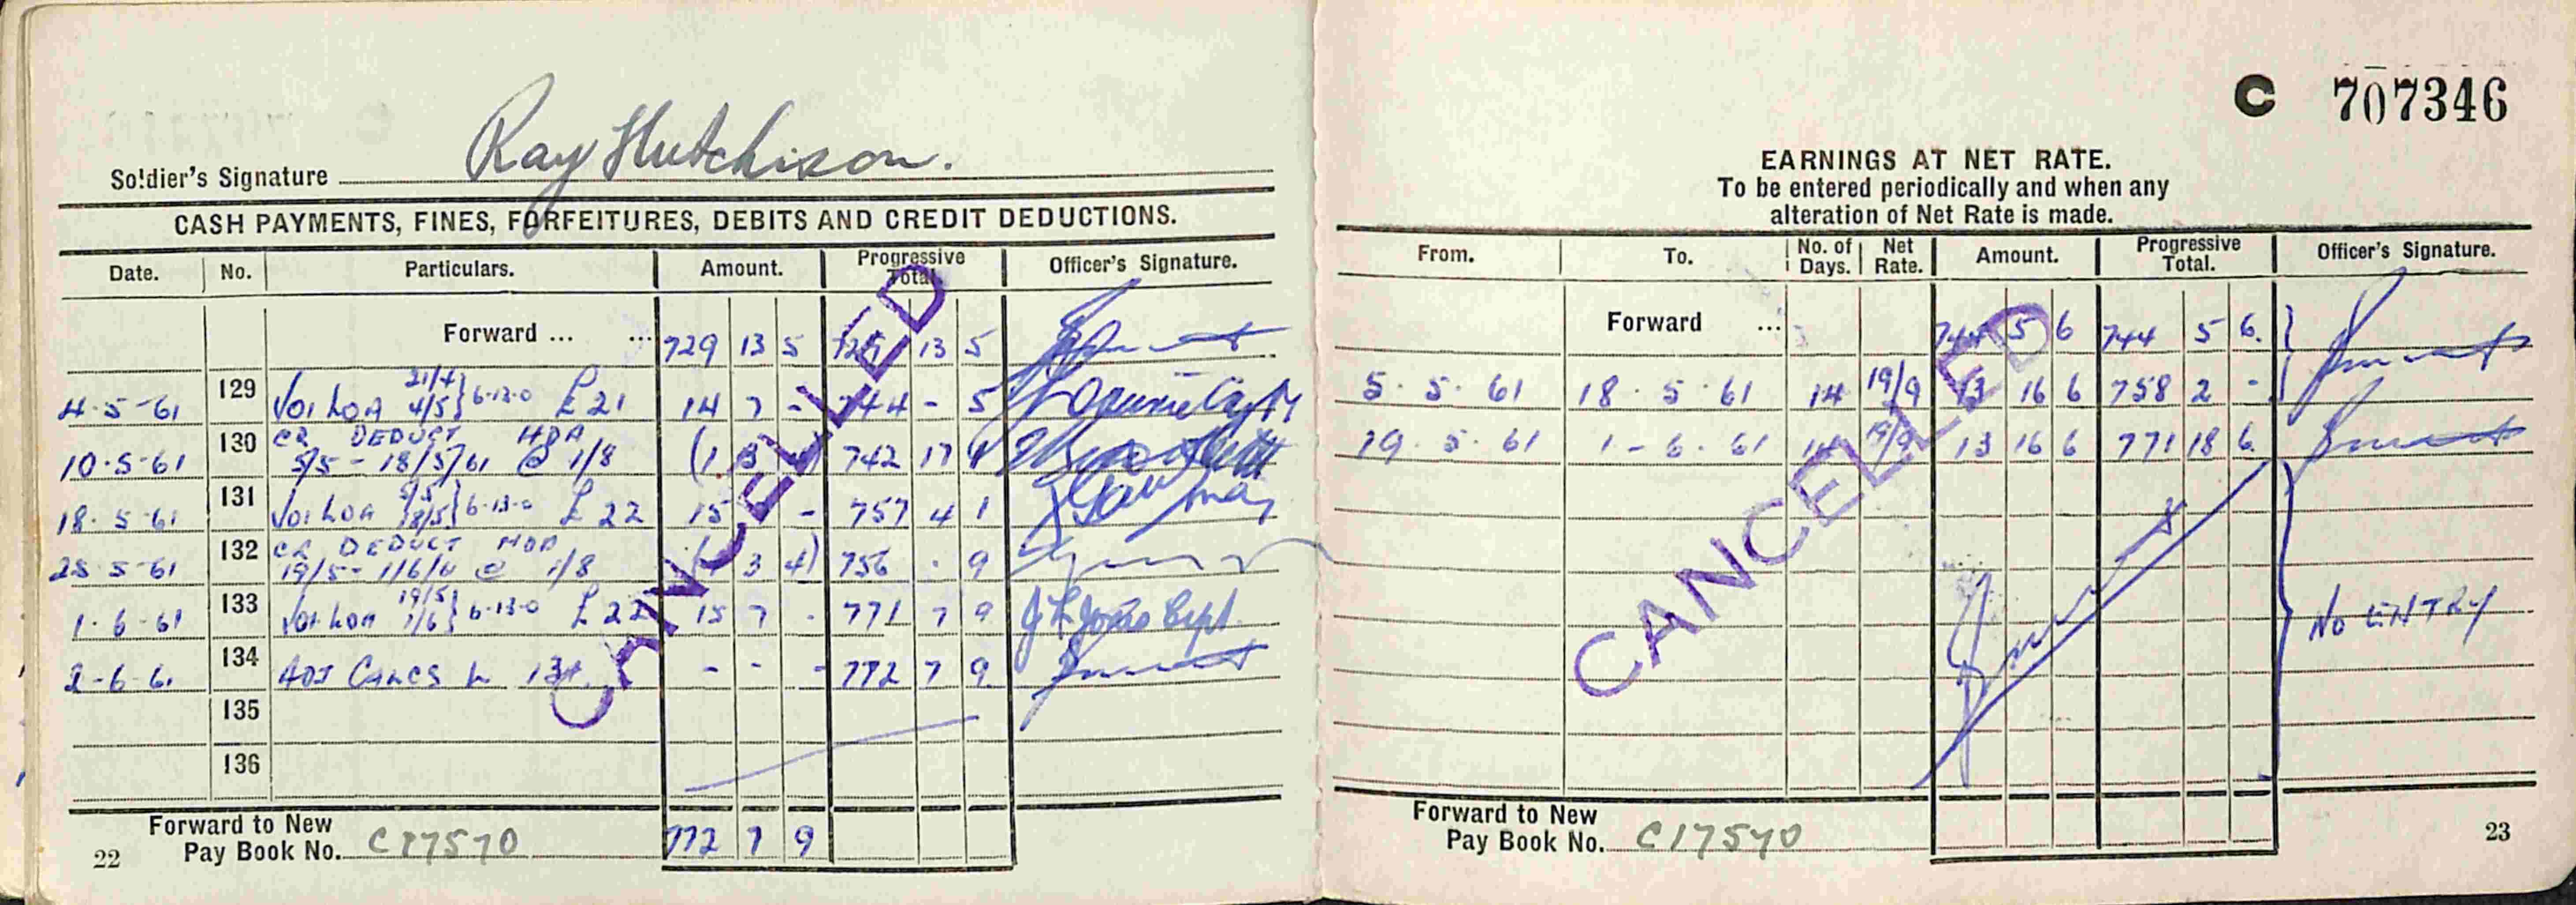 Ray Hutchison.
Soldier's Signature
CASH PAYMENTS, FINES, FORFEITURES, DEBITS AND CREDIT DEDUCTIONS.
Date. No. Particulars. Amount. Progressive Total. Officer's Signature.
Forward ... ... 729 13 5 729 13 5
4-5-61 129 21/4 4/5 } 6-13-0 £21 14 7 - 744 - 5
10-5-61 130 CR DEDUCT 5/5 - 18/5/61 @ 1/8 742 17 1
18-5-61 131 5/5 18/5 } 6-13-0 £22 15 - 757 4 1
25-5-61 132 CR DEDUCT 19/5 - 1/6/61 @ 1/8 3 4) 756 . 9
1-6-61 133 19/5 1/6 } 6-13-0 £22 15 7 - 771 7 9
2-6-61 134 ADJ - - - 772 7 9
135
136
Forward to New
Pay Book No. C17570 772 7 9
22
C 707346
EARNINGS AT NET RATE.
To be entered periodically and when any
alteration of Net Rate is made.
From. To. No. of Days. Net Rate. Amount. Progressive Total. Officer's Signature.
Forward ... 744 5 6 744 5 6.
5.5.61 18.5.61 14 19/9 13 16 6 758 2 -
19.5.61 1-6.61 14 19/9 13 16 6 771 18 6.
NO ENTRY
Forward to New
Pay Book No. C17570
23
CANCELLED
CANCELLED